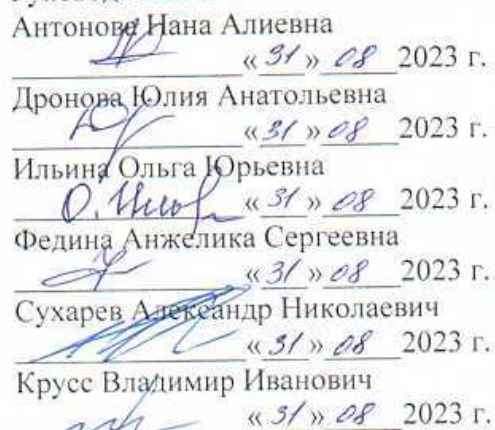 Антонова Нана Алиевна
« 31 » 08 2023 г.
Дронова Юлия Анатольевна
« 31 » 08 2023 г.
Ильина Ольга Юрьевна
« 31 » 08 2023 г.
Федина Анжелика Сергеевна
« 31 » 08 2023 г.
Сухарев Александр Николаевич
« 31 » 08 2023 г.
Крусс Владимир Иванович
« 31 » 08 2023 г.